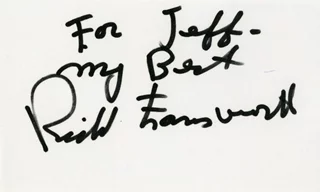 For Jeff-
my Best
Richd Farnsworth